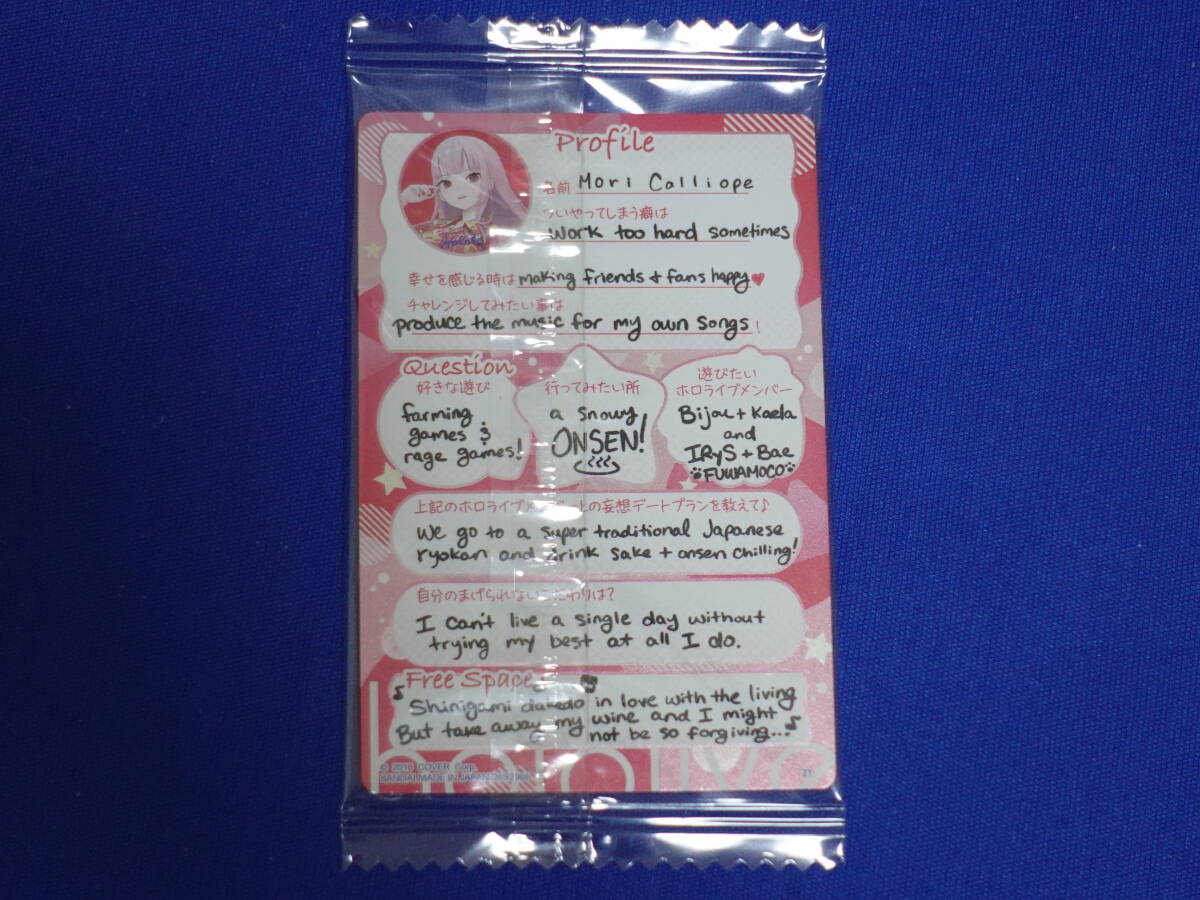 Profile
名前 Mori Calliope
ついやってしまう癖は
work too hard sometimes
幸せを感じる時は making friends + fans happy ♥
チャレンジしてみたい事は
produce the music for my own songs!
Question
好きな遊び
farming
games &
rage games!
行ってみたい所
a snowy
ONSEN!
遊びたい
ホロライブメンバー
Bijou + Kaela
and
IRyS + Bae
FUWAMOCO
上記のホロライブメンバーとの妄想デートプランを教えて♪
We go to a super traditional Japanese
ryokan and drink sake + onsen chilling!
自分のまげられないこだわりは?
I can't live a single day without
trying my best at all I do.
Free Space
♪ Shinigami dakedo in love with the living
But take away my wine and I might
not be so forgiving...♪
hololive
© 2016 COVER Corp.
BANDAI MADE IN JAPAN
21